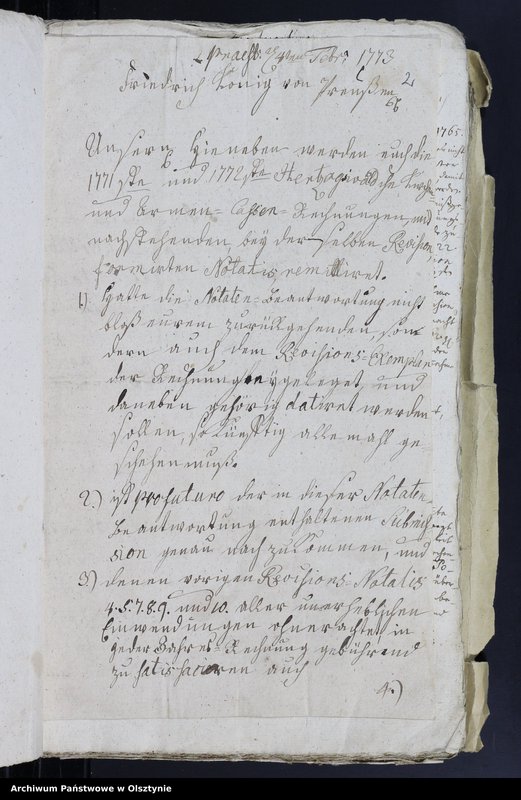 Praes. d. 4ten Febr. 1773
2
Friedrich König von Preußen
66
Unsern hieneben werden euch die
1771ste und 1772ste Hertzogswaldsche Kirchen
und Armen-Cassen-Rechnungen, mit
nachstehenden, bey derselben Revision
formirten Notatis remittiret.
1) Hatte die Notaten-Beantwortung nicht
bloß eurem zurückgehenden, son
dern auch dem Revisions-Exemplar
der Rechnung beygeleget, und
daneben gehörig datiret werden
sollen, so künfftig allemahl ge
schehen muß.
2.) ist pro futuro der in dieser Notaten
Beantwortung enthaltenen Submis
sion genau nachzukommen, und
3) denen vorigen Revisions-Notatis
4. 5. 7. 8. 9. und 10. aller unerheblichen
Einwendungen ohnerachtet in
jeder Jahres-Rechnung gebührend
zu satisfaciren auch
4.)
1765.
22
Archiwum Państwowe w Olsztynie